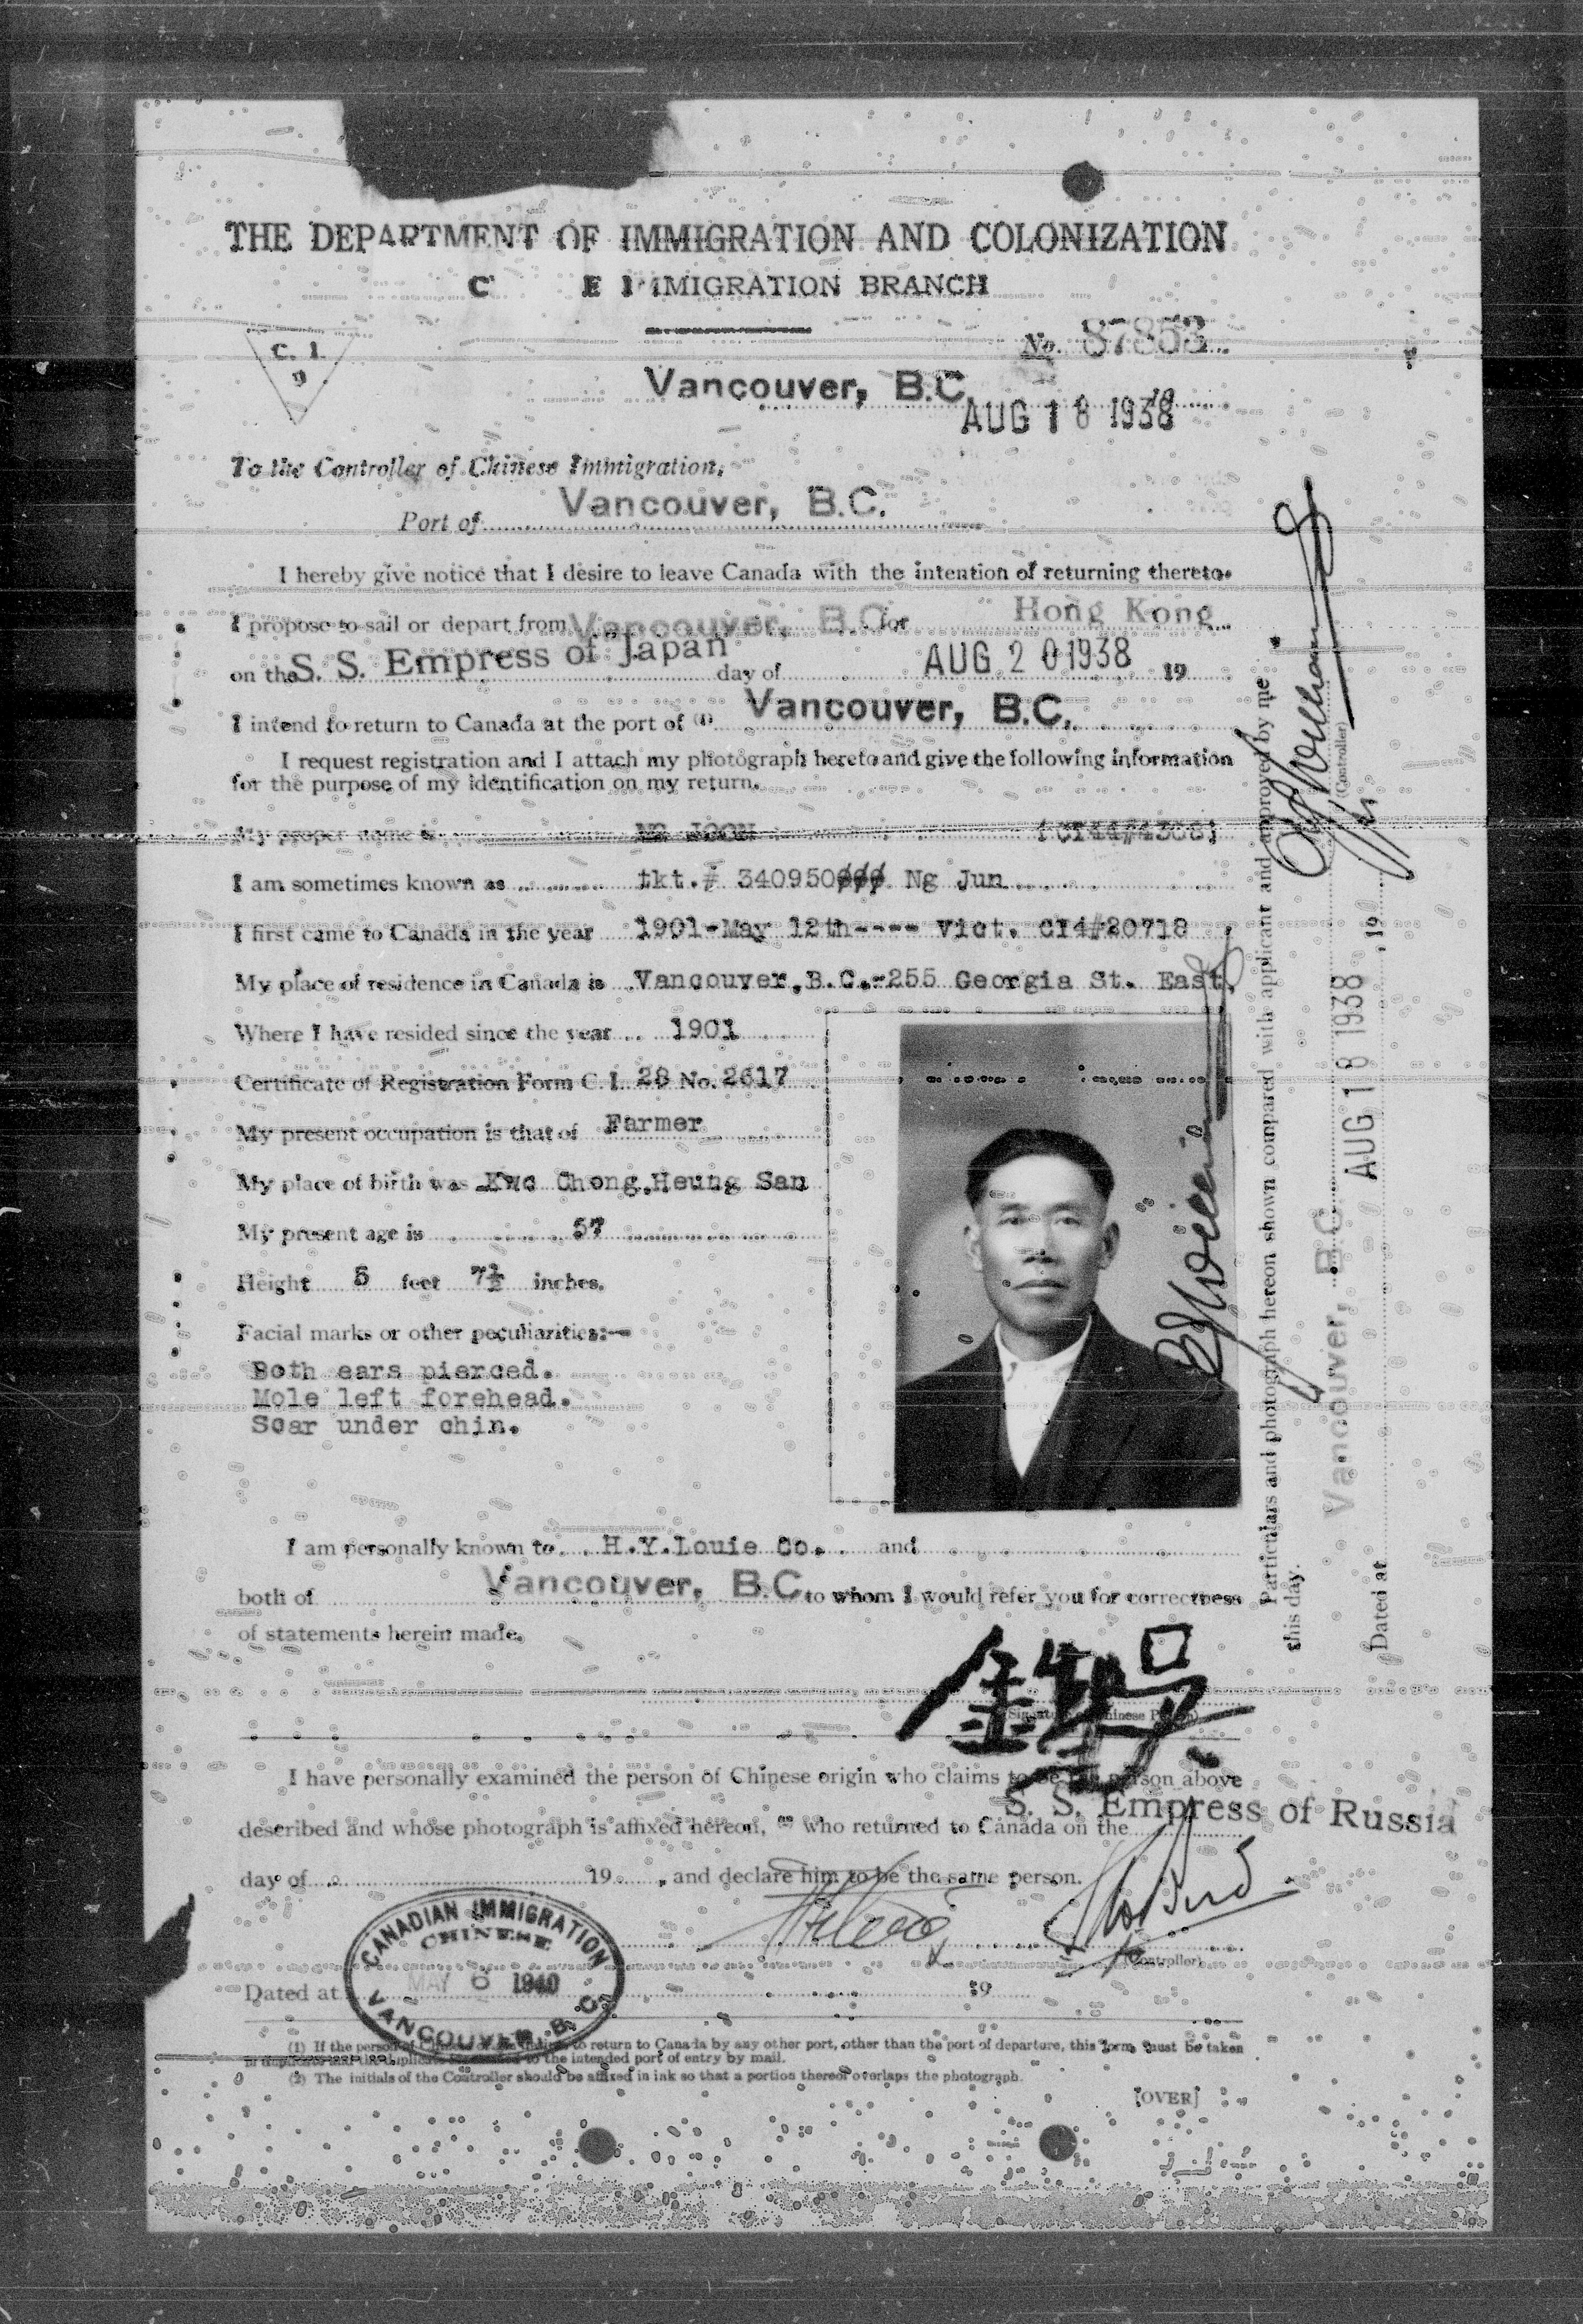 THE DEPARTMENT OF IMMIGRATION AND COLONIZATION
C E IMMIGRATION BRANCH
C. I. 9
No. 87853
Vancouver, B.C.
AUG 18 1938
To the Controller of Chinese Immigration,
Port of Vancouver, B.C.
I hereby give notice that I desire to leave Canada with the intention of returning thereto.
I propose to sail or depart from Vancouver, B.C. for Hong Kong
on the S. S. Empress of Japan day of AUG 20 1938 19
I intend to return to Canada at the port of (1) Vancouver, B.C.
I request registration and I attach my photograph hereto and give the following information
for the purpose of my identification on my return.
My proper name is NG JOON (CI44#4308)
I am sometimes known as tkt.# 340950 Ng Jun
I first came to Canada in the year 1901-May 12th---- Vict. CI4#20718
My place of residence in Canada is Vancouver,B.C.-255 Georgia St. East,
Where I have resided since the year 1901
Certificate of Registration Form C. I. 28 No. 2617
My present occupation is that of Farmer
My place of birth was Kwo Chong,Heung San
My present age is 57
Height 5 feet 7½ inches.
Facial marks or other peculiarities:—
Both ears pierced.
Mole left forehead.
Scar under chin.
I am personally known to H.Y.Louie Co. and
both of Vancouver, B.C. to whom I would refer you for correctness
of statements herein made.
(Signature of Chinese Person)
I have personally examined the person of Chinese origin who claims to be the person above
described and whose photograph is affixed hereon, who returned to Canada on the S. S. Empress of Russia
day of 19 , and declare him to be the same person.
(Controller)
CANADIAN IMMIGRATION
CHINESE
MAY 6 1940
VANCOUVER, B. C.
Dated at 19
(1) If the person of Chinese origin to return to Canada by any other port, other than the port of departure, this form must be taken
in duplicate and the duplicate to the intended port of entry by mail.
(2) The initials of the Controller should be affixed in ink so that a portion thereof overlaps the photograph.
[OVER]
Particulars and photograph hereon shown compared with applicant and approved by me
this day.
(Controller)
Dated at Vancouver, B.C. AUG 18 1938 , 19